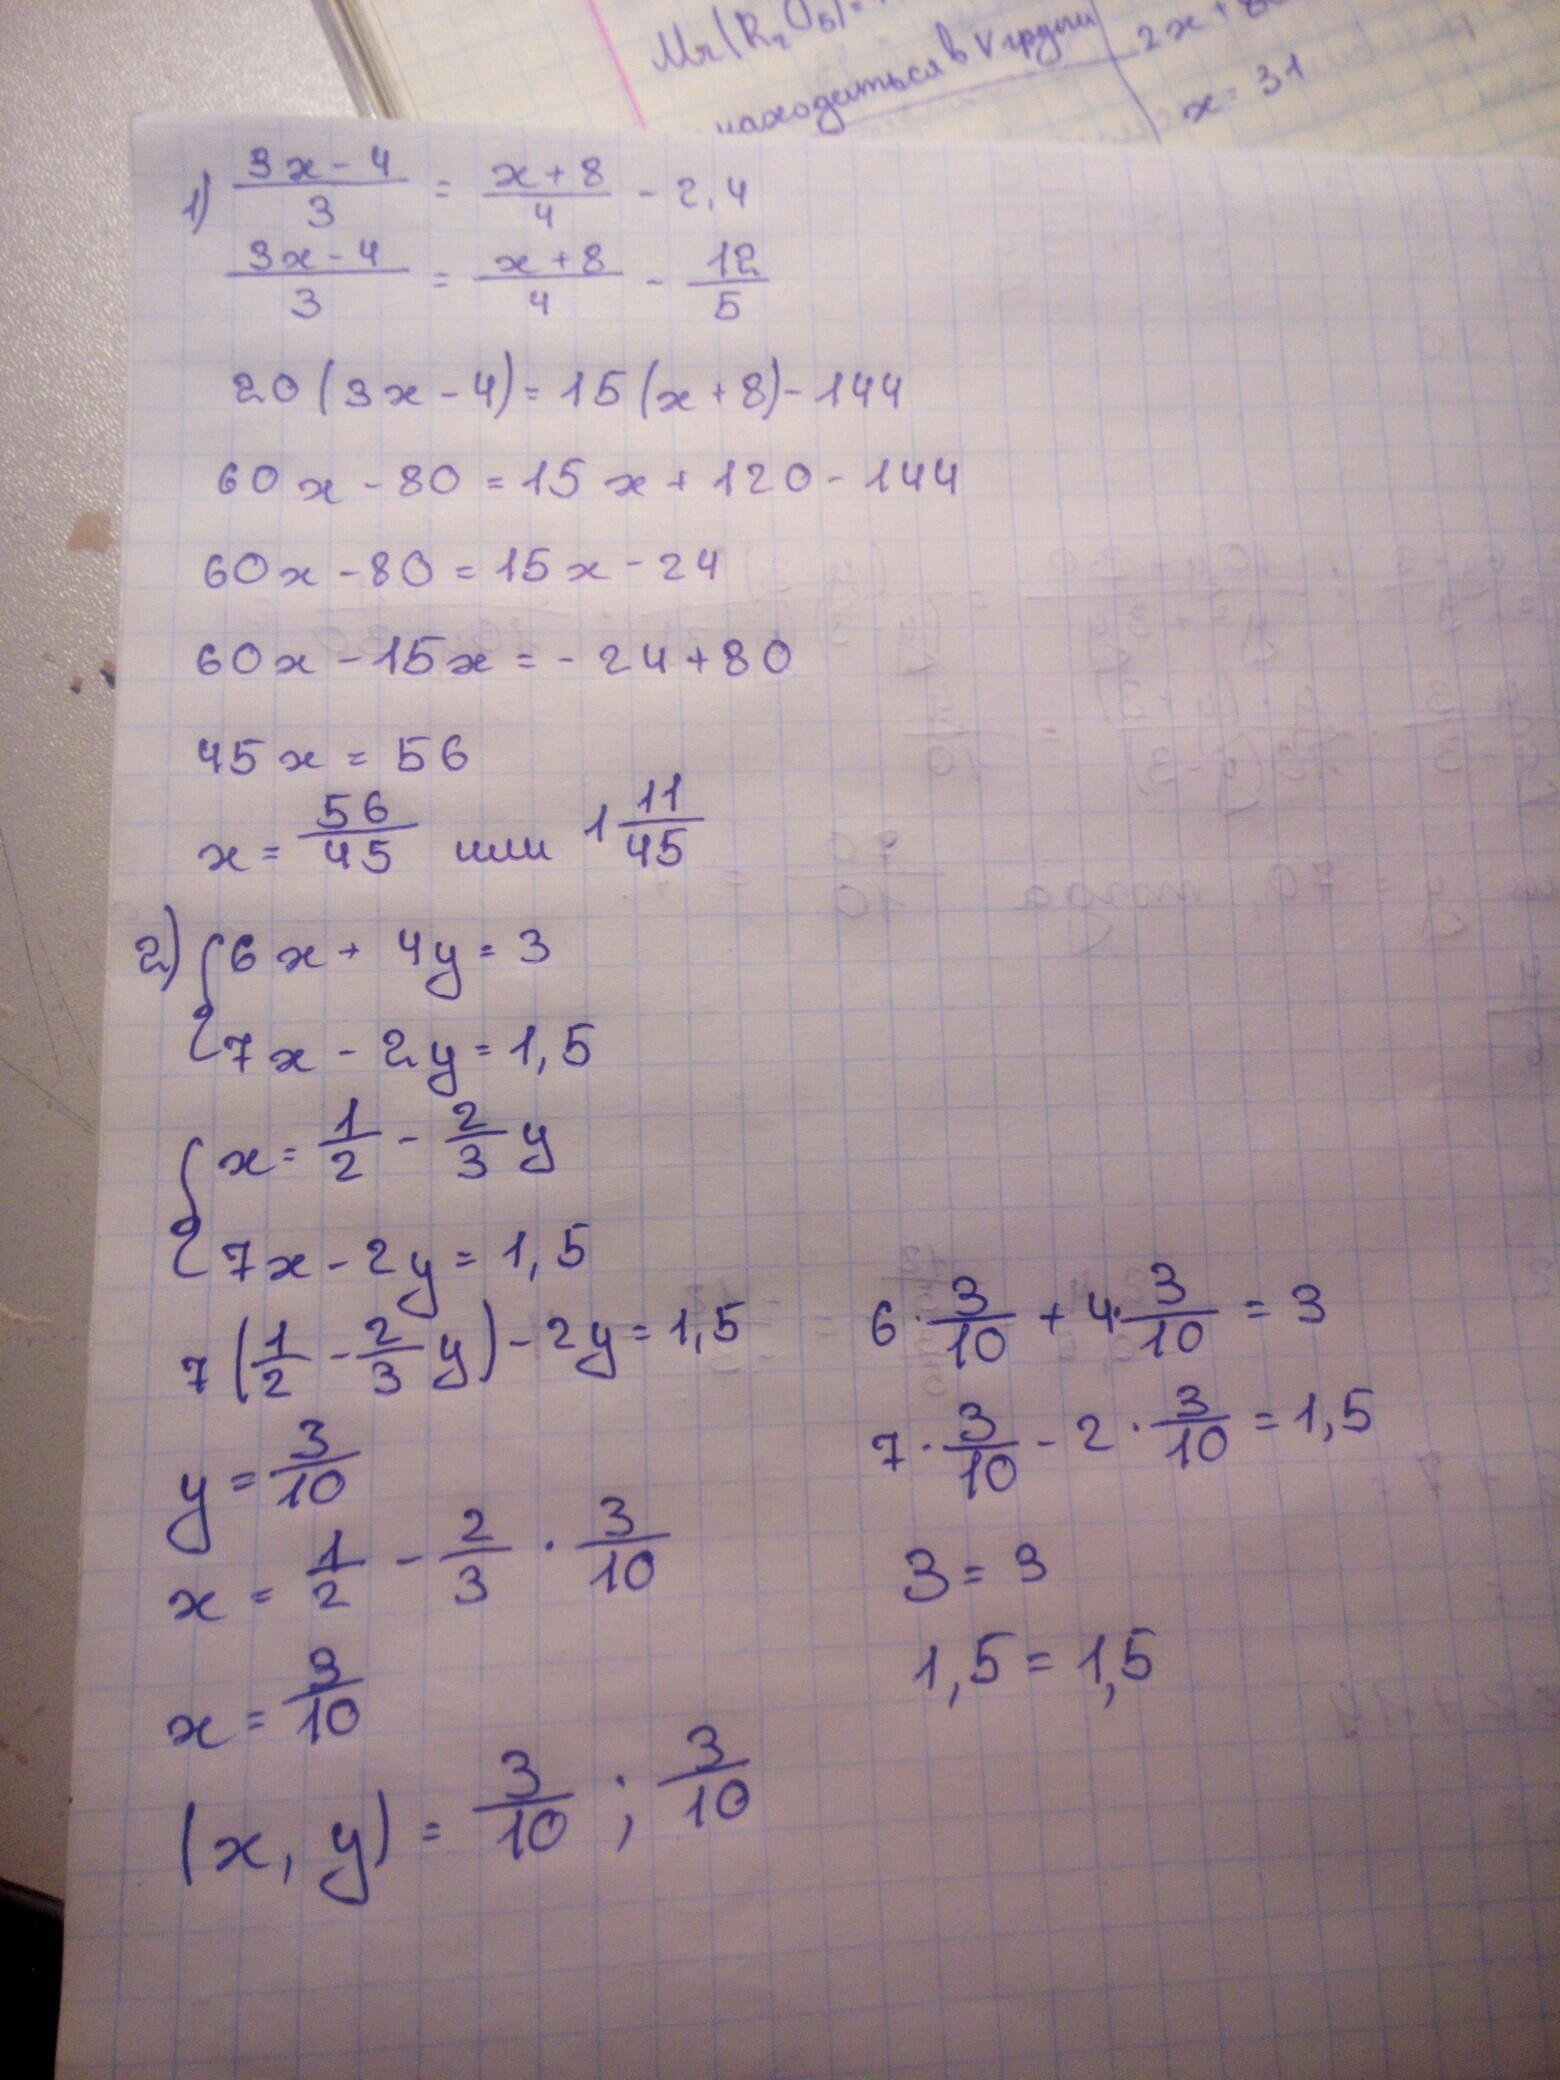 Mr(R₂O₅)=
находиться в V группе
2x + 8
x = 31
1) (3x - 4)/3 = (x + 8)/4 - 2,4
(3x - 4)/3 = (x + 8)/4 - 12/5
20(3x - 4) = 15(x + 8) - 144
60x - 80 = 15x + 120 - 144
60x - 80 = 15x - 24
60x - 15x = - 24 + 80
45x = 56
x = 56/45 или 1 11/45
2) { 6x + 4y = 3
7x - 2y = 1,5
{ x = 1/2 - 2/3 y
7x - 2y = 1,5
7(1/2 - 2/3 y) - 2y = 1,5
y = 3/10
x = 1/2 - 2/3 · 3/10
x = 3/10
(x, y) = 3/10 ; 3/10
6 · 3/10 + 4 · 3/10 = 3
7 · 3/10 - 2 · 3/10 = 1,5
3 = 3
1,5 = 1,5